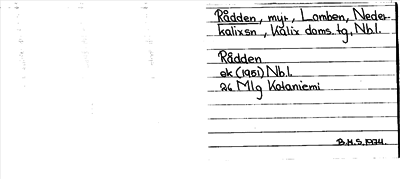 Rådden, myr, Lomben, Neder-
kalix sn, Kalix doms. tg, Nb.l.
Rådden
ek (1951) Nb.l.
26 Mlg Kataniemi
B.H.S. 1974.